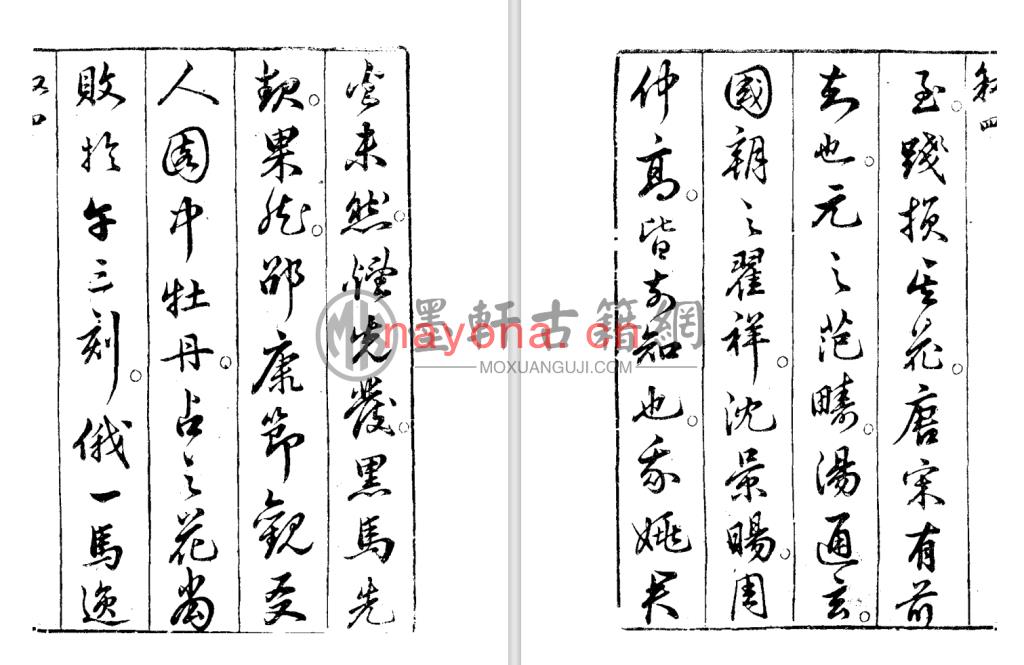 未然。煙先發。黑馬先
果然。邵康節觀友
人園中牡丹。占之花當
敗於午三刻。俄一馬逸
叙四
叙四
至。踐損其花。唐宋有前
知也。元之范疇。湯通玄。
國朝之翟祥。沈景暘。周
仲高。皆前知也。我姚
墨軒古籍網
MOXUANGUJI.COM
nayona.cn